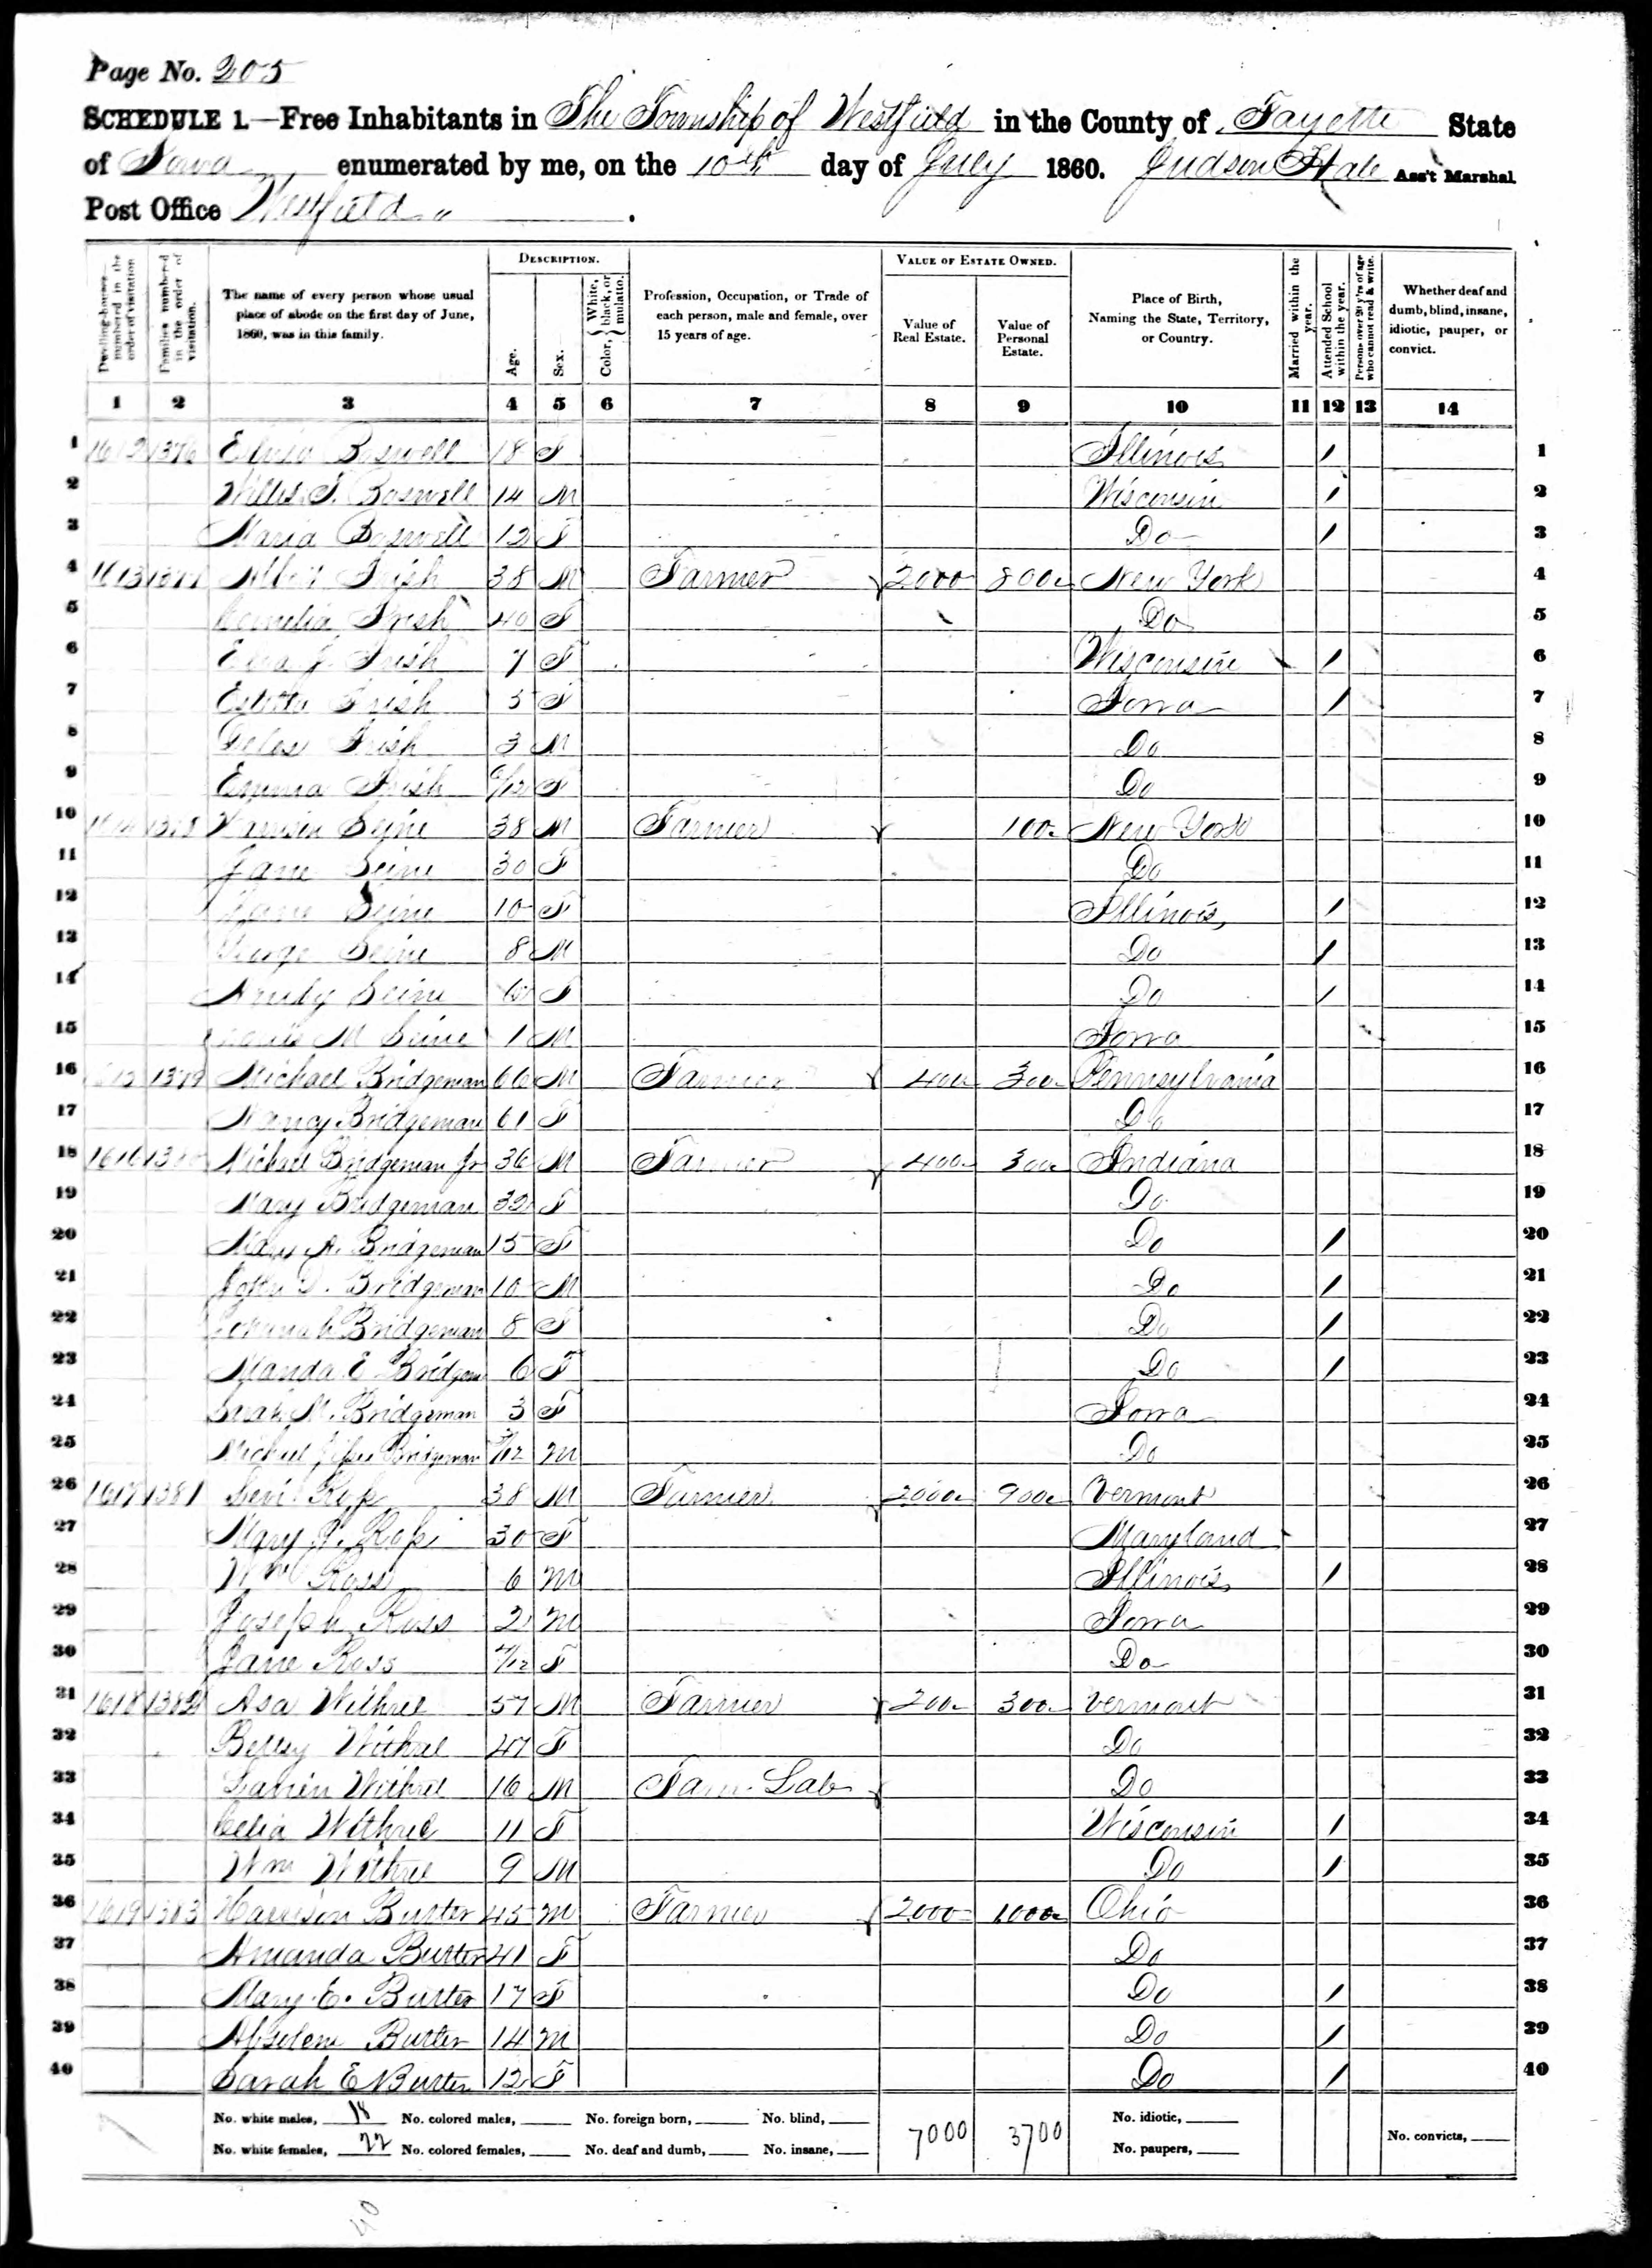 Page No. 205
SCHEDULE 1.—Free Inhabitants in The Township of Westfield in the County of Fayette State
of Iowa enumerated by me, on the 10th day of July 1860. Judson Hale Ass't Marshal
Post Office Westfield
Dwelling-houses—numbered in the order of visitation
Families numbered in the order of visitation.
The name of every person whose usual place of abode on the first day of June, 1860, was in this family.
DESCRIPTION.
Age.
Sex.
Color, White, black, or mulatto.
Profession, Occupation, or Trade of each person, male and female, over 15 years of age.
VALUE OF ESTATE OWNED.
Value of Real Estate.
Value of Personal Estate.
Place of Birth, Naming the State, Territory, or Country.
Married within the year.
Attended School within the year.
Persons over 20 y'rs of age who cannot read & write.
Whether deaf and dumb, blind, insane, idiotic, pauper, or convict.
1 2 3 4 5 6 7 8 9 10 11 12 13 14
1 1612 1376 Boswell 18 F Illinois / 1
2 Willis Boswell 14 M Wisconsin / 2
3 Maria Boswell 12 F Do / 3
4 1613 1377 Albert Irish 38 M Farmer 2000 800 New York 4
5 Cornelia Irish 40 F Do 5
6 J. Irish 7 F Wisconsin / 6
7 Irish 5 F Iowa / 7
8 Delos Irish 3 M Do 8
9 Emma Irish 6/12 F Do 9
10 1614 1378 38 M Farmer 100 New York 10
11 Jane 30 F Do 11
12 10 F Illinois / 12
13 George 8 M Do / 13
14 6 F Do / 14
15 M 1 M Iowa 15
16 1615 1379 Michael Bridgeman 66 M Farmer 400 300 Pennsylvania 16
17 Nancy Bridgeman 61 F Do 17
18 1616 1380 Michael Bridgeman Jr 36 M Farmer 400 300 Indiana 18
19 Mary Bridgeman 32 F Do 19
20 Mary A. Bridgeman 15 F Do / 20
21 John Bridgeman 10 M Do / 21
22 Bridgeman 8 F Do / 22
23 Manda E Bridgem 6 F Do / 23
24 Sarah M. Bridgeman 3 F Iowa 24
25 Michael Bridgeman /12 M Do 25
26 1617 1381 Levi Ross 38 M Farmer 2000 900 Vermont 26
27 Mary Ross 30 F Maryland 27
28 Wm Ross 6 M Illinois / 28
29 Joseph Ross 2 M Iowa 29
30 Jane Ross 4/12 F Do 30
31 1618 1382 Asa Withrel 57 M Farmer 200 300 Vermont 31
32 Betsy Withrel 47 F Do 32
33 Withrel 16 M Farm Lab Do 33
34 Celia Withrel 11 F Wisconsin / 34
35 Wm Withrel 9 M Do / 35
36 1619 1383 Harrison Burter 45 M Farmer 2000 1000 Ohio 36
37 Amanda Burter 41 F Do 37
38 Mary E. Burter 17 F Do / 38
39 Absolem Burter 14 M Do / 39
40 Sarah E Burter 12 F Do / 40
No. white males, 18 No. colored males, No. foreign born, No. blind, 7000 3700 No. idiotic,
No. white females, 22 No. colored females, No. deaf and dumb, No. insane, No. paupers, No. convicts,
40